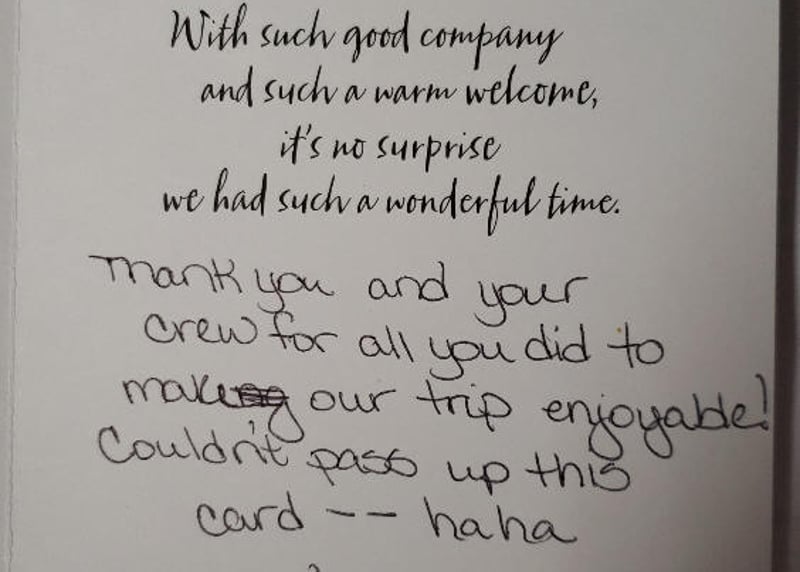 With such good company
and such a warm welcome,
it's no surprise
we had such a wonderful time.
Thank you and your
crew for all you did to
make our trip enjoyable!
Couldn't pass up this
card -- haha